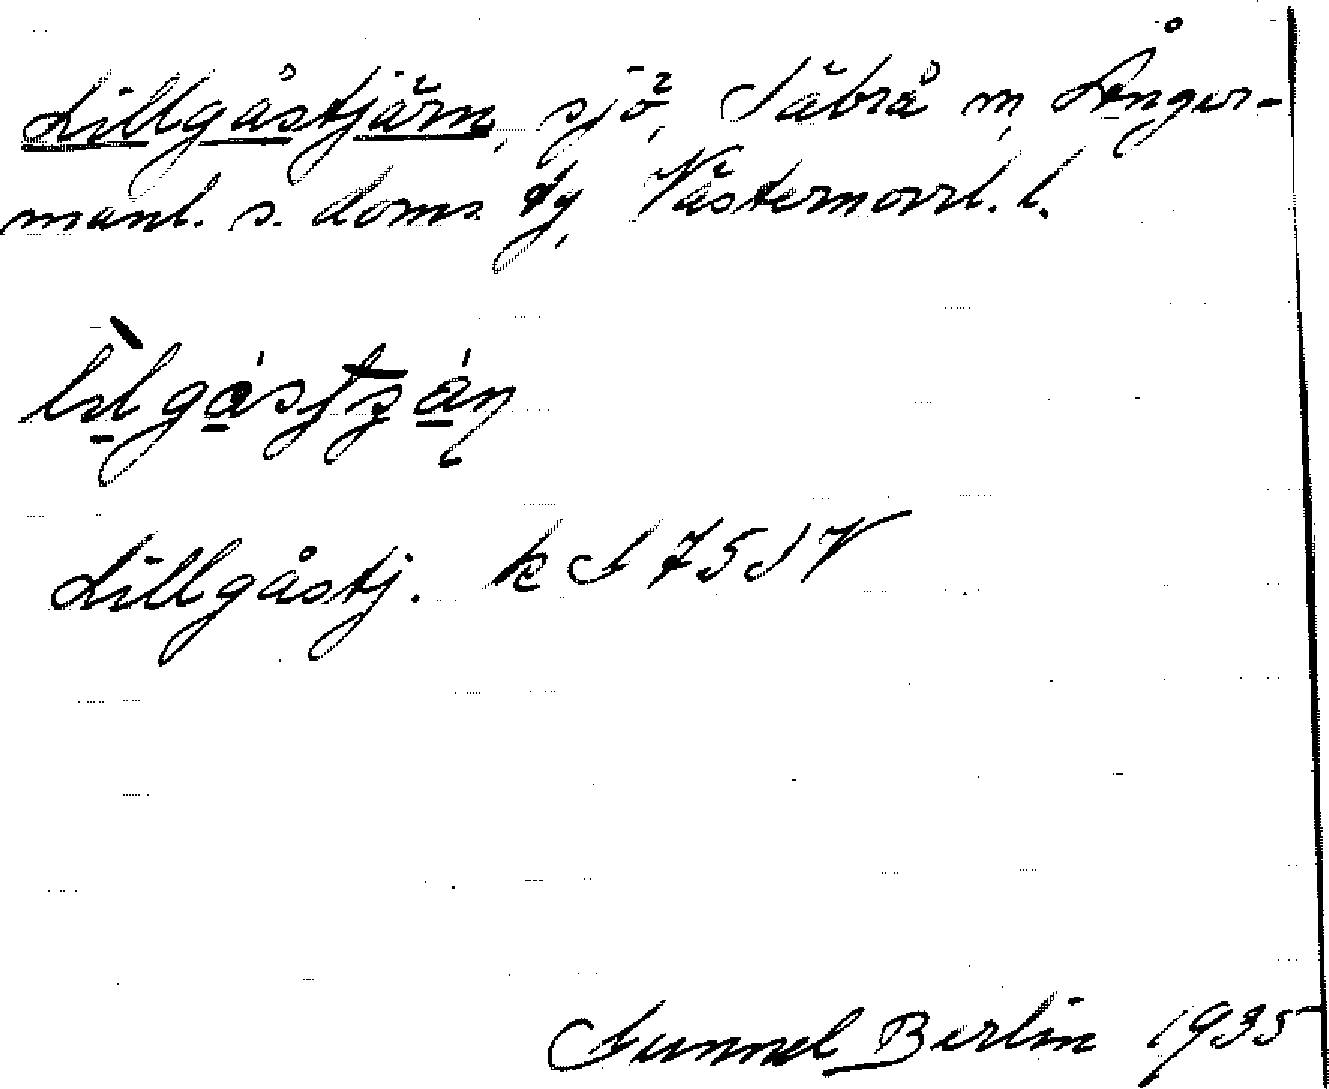 Lillgåstjärn, sjö, Säbrå sn, Ånger-
manl. s. doms. tg, Västernorrl. l.
Lillgåstj. k
Gunnel Berlin 1935